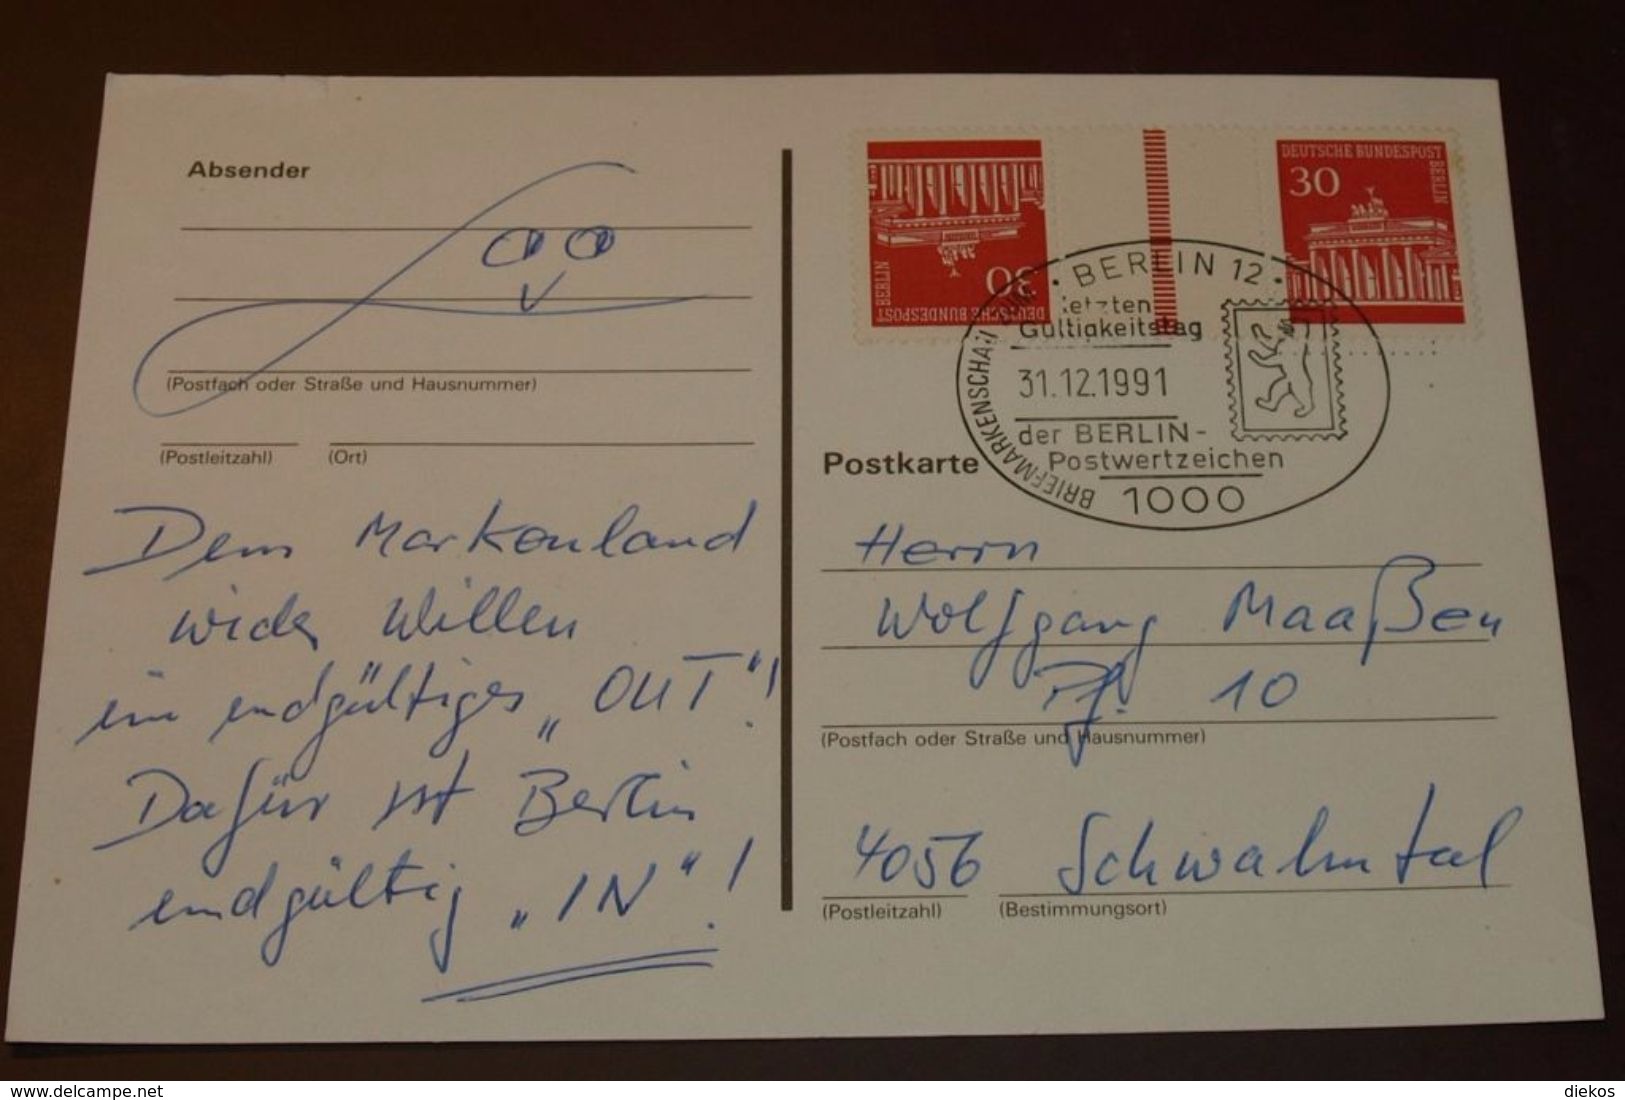 Absender
(Postfach oder Straße und Hausnummer)
(Postleitzahl) (Ort)
Dem Markenland
wider Willen
ein endgültiges „OUT"!
Dafür ist Berlin
endgültig „IN"!
DEUTSCHE BUNDESPOST
BERLIN
30
DEUTSCHE BUNDESPOST
BERLIN
30
· BERLIN 12 ·
BRIEFMARKENSCHAU
letzten
Gültigkeitstag
31.12.1991
der BERLIN-
Postwertzeichen
1000
Postkarte
Herrn
Wolfgang Maaßen
Pf. 10
(Postfach oder Straße und Hausnummer)
4056 Schwalmtal
(Postleitzahl) (Bestimmungsort)
www.delcampe.net
diekos